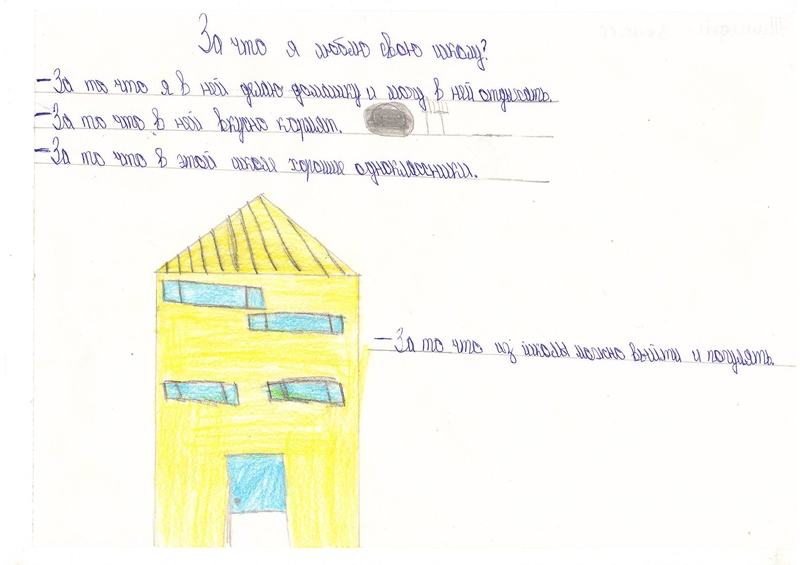 За что я люблю свою школу?
– За то что я в ней делаю домашку и могу в ней отдыхать.
– За то что в ней вкусно кормят.
– За то что в этой школе хорошие одноклассники.
– За то что из школы можно выйти и погулять.